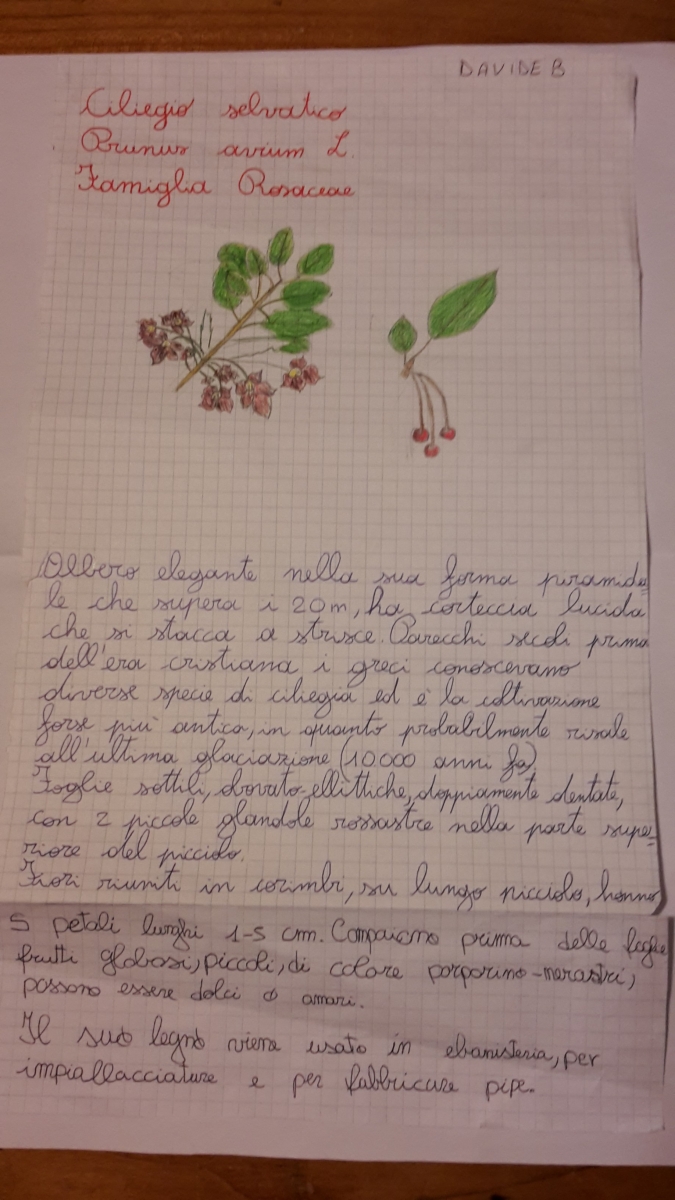 DAVIDE B
Ciliegio selvatico
Prunus avium L.
Famiglia Rosaceae
Albero elegante nella sua forma piramida=
le che supera i 20 m, ha corteccia lucida
che si stacca a strisce. Parecchi secoli prima
dell'era cristiana i greci conoscevano
diverse specie di ciliegia ed è la coltivazione
forse più antica, in quanto probabilmente risale
all'ultima glaciazione (10.000 anni fa)
Foglie sottili, obovato-ellittiche, doppiamente dentate,
con 2 piccole glandole rossastre nella parte supe=
riore del picciolo.
Fiori riuniti in corimbi, su lungo picciolo, hanno
5 petali lunghi 1-5 cm. Compaiono prima delle foglie
frutti globosi, piccoli, di colore porporino-nerastri,
possono essere dolci o amari.
Il suo legno viene usato in ebanisteria, per
impiallacciature e per fabbricare pipe.